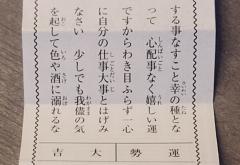 する事なすこと幸の種とな
って 心配事なく嬉しい運
ですからわき目ふらず一心
に自分の仕事大事とはげみ
なさい 少しでも我儘の気
を起して色や酒に溺れるな
運勢 大吉